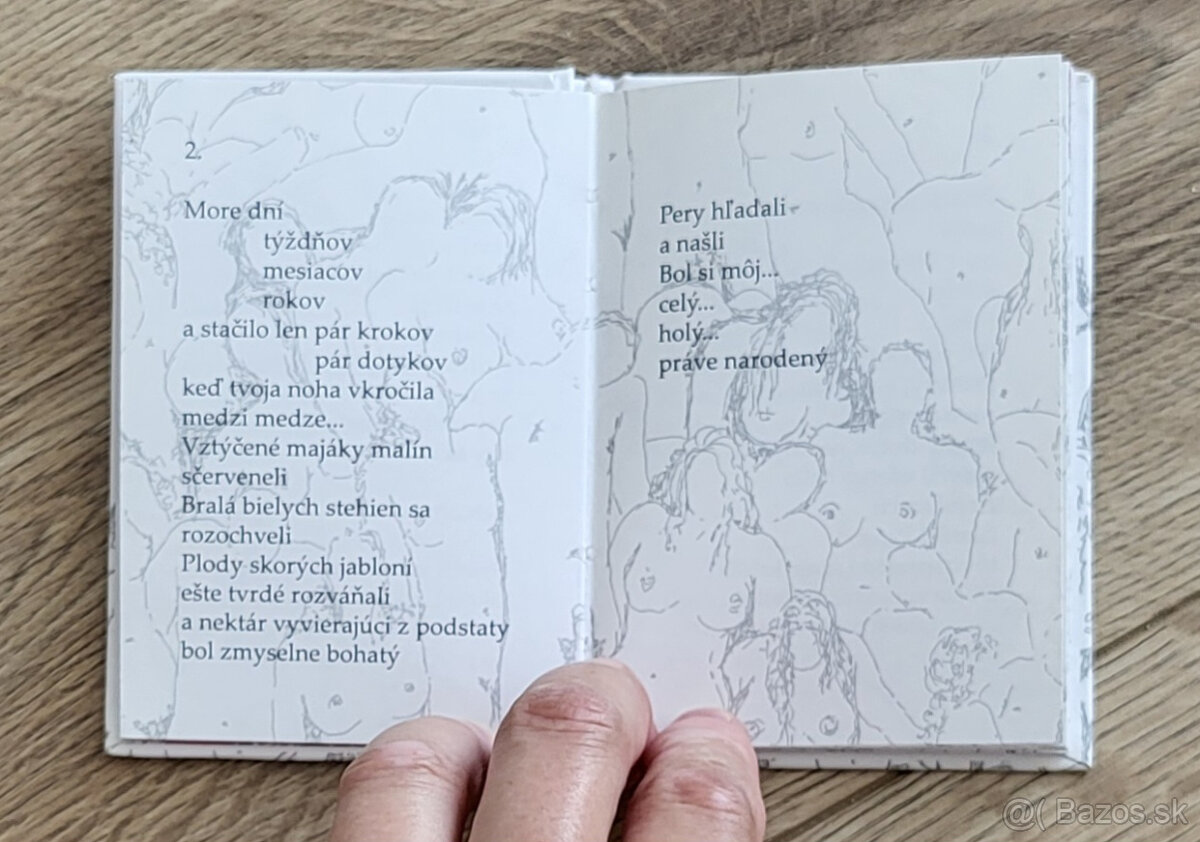 2.
More dní
týždňov
mesiacov
rokov
a stačilo len pár krokov
pár dotykov
keď tvoja noha vkročila
medzi medze...
Vztýčené majáky malín
sčerveneli
Bralá bielych stehien sa
rozochveli
Plody skorých jabloní
ešte tvrdé rozváňali
a nektár vyvierajúci z podstaty
bol zmyselne bohatý
Pery hľadali
a našli
Bol si môj...
celý...
holý...
práve narodený
@( Bazos.sk